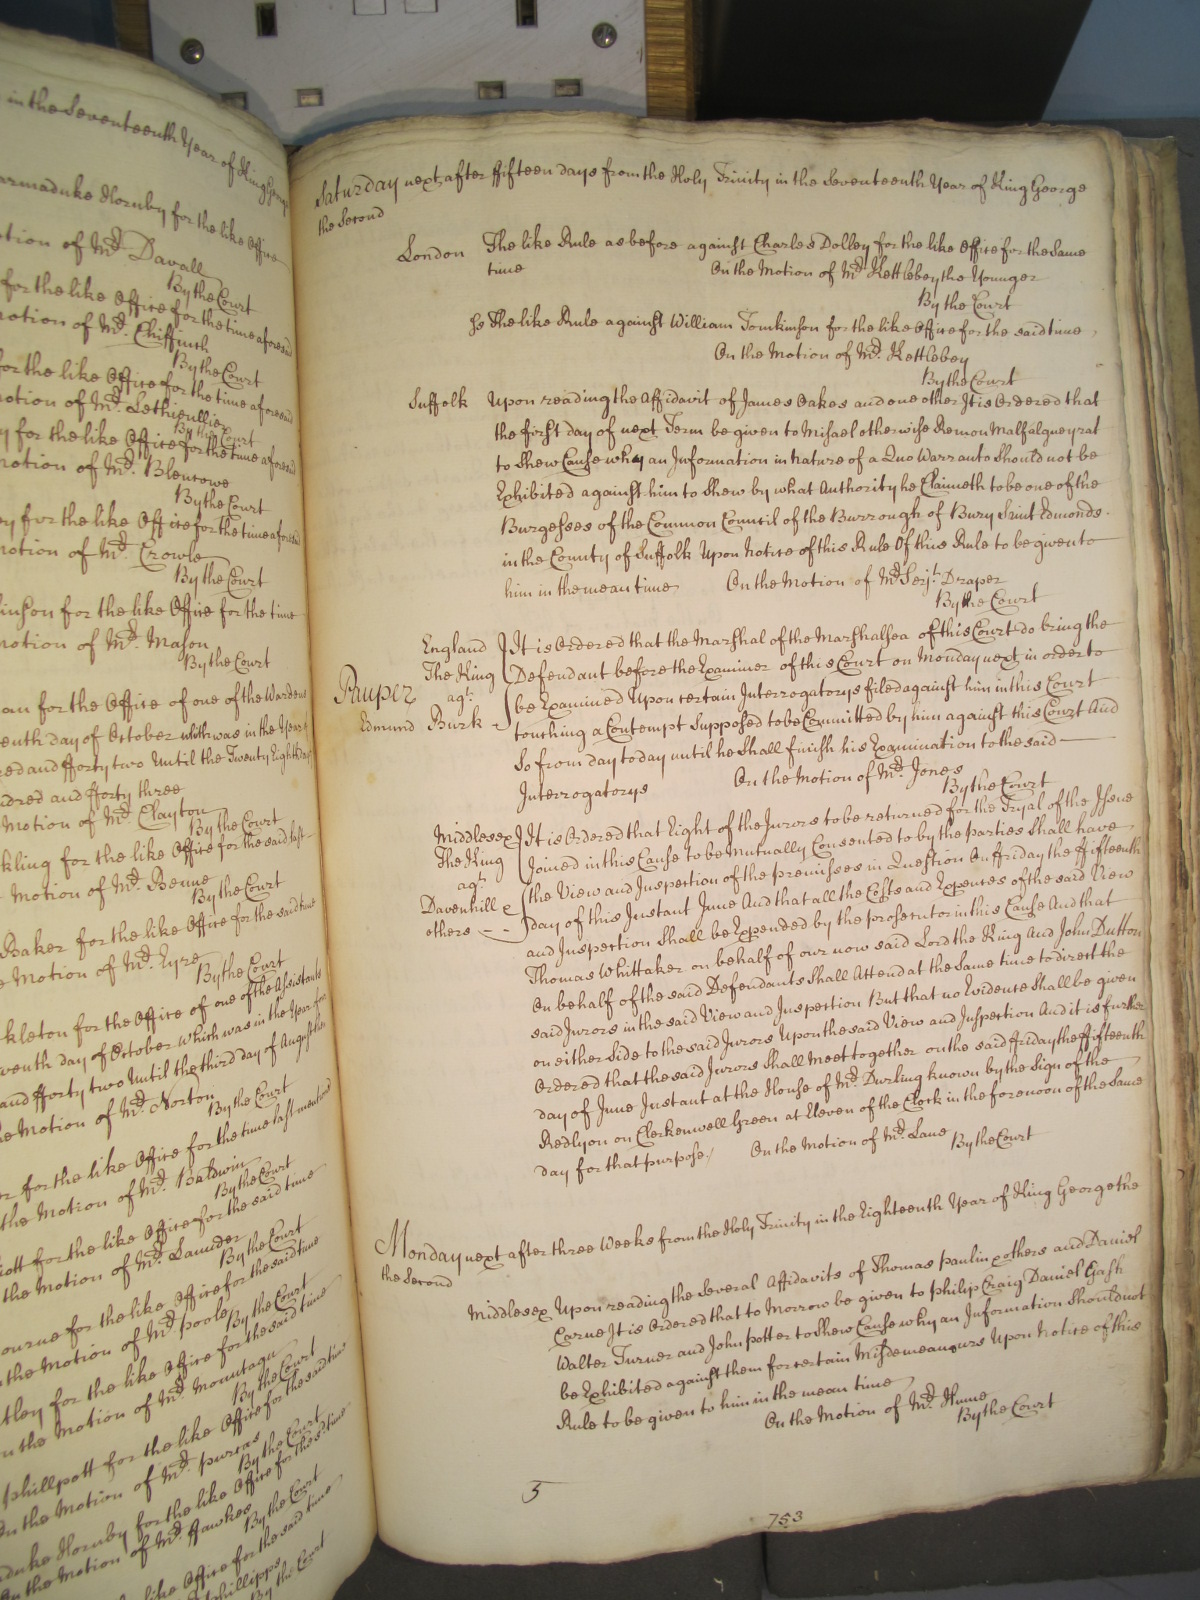 in the Seventeenth Year of King George
armaduke Hornby for the like Office
otion of Mr. Davall
By the Court
for the like Office for the time aforesaid
otion of Mr. Chiffinch
By the Court
for the like Office for the time aforesaid
otion of Mr. Lethieullier
By the Court
y for the like Office for the time aforesaid
motion of Mr. Blencowe
By the Court
ey for the like Office for the time aforesaid
otion of Mr. Crowle
By the Court
inson for the like Office for the time
motion of Mr. Mason
By the Court
an for the Office of one of the Wardens
eenth day of October which was in the Year
red and fforty two Until the Twenty Eighth day
ndred and fforty three
Motion of Mr. Clayton
By the Court
kling for the like Office for the said last
Motion of Mr. Benne
By the Court
Baker for the like Office for the said time
e Motion of Mr. Eyre
By the Court
kleton for the Office of one of the Assistants
venth day of October which was in the Year
and fforty two Until the third day of August
he Motion of Mr. Norton
By the Court
er for the like Office for the time last mentioned
the Motion of Mr. Baldwin
By the Court
iott for the like Office for the said time
the Motion of Mr. Saunder
By the Court
ourne for the like Office for the said time
the Motion of Mr. poole
By the Court
tley for the like Office for the said time
n the Motion of Mr. Mountagu
By the Court
phillpott for the like Office for the said time
On the Motion of Mr. purcas
By the Court
aduke Hornby for the like Office for the sd. time
On the Motion of Mr. Hawkes
By the Court
like Office for the said time
phillipps
By the Court
Saturday next after ffifteen days from the Holy Trinity in the Seventeenth Year of King George
the Second
London The like Rule as before against Charles Dolley for the like Office for the same
time On the Motion of Mr. Kettlebey the Younger
By the Court
Ss The like Rule against William Tomkinson for the like Office for the said time
On the Motion of Mr. Kettlebey
By the Court
Suffolk Upon reading the Affidavit of James Oakes and one other It is Ordered that
the first day of next Term be given to Misael otherwise Remon Malfalgueyrat
to Shew Cause why an Information in Nature of a Quo Warranto should not be
Exhibited against him to Shew by what Authority he Claimeth to be one of the
Burgesses of the Common Council of the Burrough of Bury Saint Edmonds
in the County of Suffolk Upon Notice of this Rule Of this Rule to be given to
him in the mean time On the Motion of Mr. Serjt. Draper
By the Court
England It is Ordered that the Marshal of the Marshalsea of this Court do bring the
The King Defendant before the Examiner of this Court on Monday next in order to
Pauper agt. be Examined Upon certain Interrogatorys filed against him in this Court
Edmund Burk touching a Contempt Supposed to be Committed by him against this Court And
So from day to day until he Shall finish his Examination to the said
Interrogatorys On the Motion of Mr. Jones
By the Court
Middlesex It is Ordered that Eight of the Jurors to be returned for the Tryal of the Issue
The King Joined in this Cause to be Mutually Consented to by the parties Shall have
agt. the View and Inspection of the premisses in Question On ffriday the ffifteenth
Davenhill & day of this Instant June And that all the Costs and Expences of the said View
others and Inspection Shall be Expended by the prosecutor in this Cause And that
Thomas Whittaker on behalf of our now said Lord the King And John Dutton
On behalf of the said Defendants Shall Attend at the Same time to direct the
said Jurors in the said View and Inspection But that no Evidence Shall be given
on either Side to the said Jurors Upon the said View and Inspection And it is further
Ordered that the said Jurors Shall meet together on the said ffriday the ffifteenth
day of June Instant at the House of Mr. Durling known by the Sign of the
Redlyon on Clerkenwell Green at Eleven of the Clock in the forenoon of the Same
day for that purpose On the Motion of Mr. Lane
By the Court
Monday next after three Weeks from the Holy Trinity in the Eighteenth Year of King George the
the Second
Middlesex Upon reading the Several Affidavits of Thomas paulin & others and Daniel
Carne It is Ordered that to Morrow be given to philip Craig Daniel Gash
Walter Turner and John potter to Shew Cause why an Information Should not
be Exhibited against them for certain Misdemeanours Upon Notice of this
Rule to be given to him in the mean time
On the Motion of Mr. Hume
By the Court
5
753